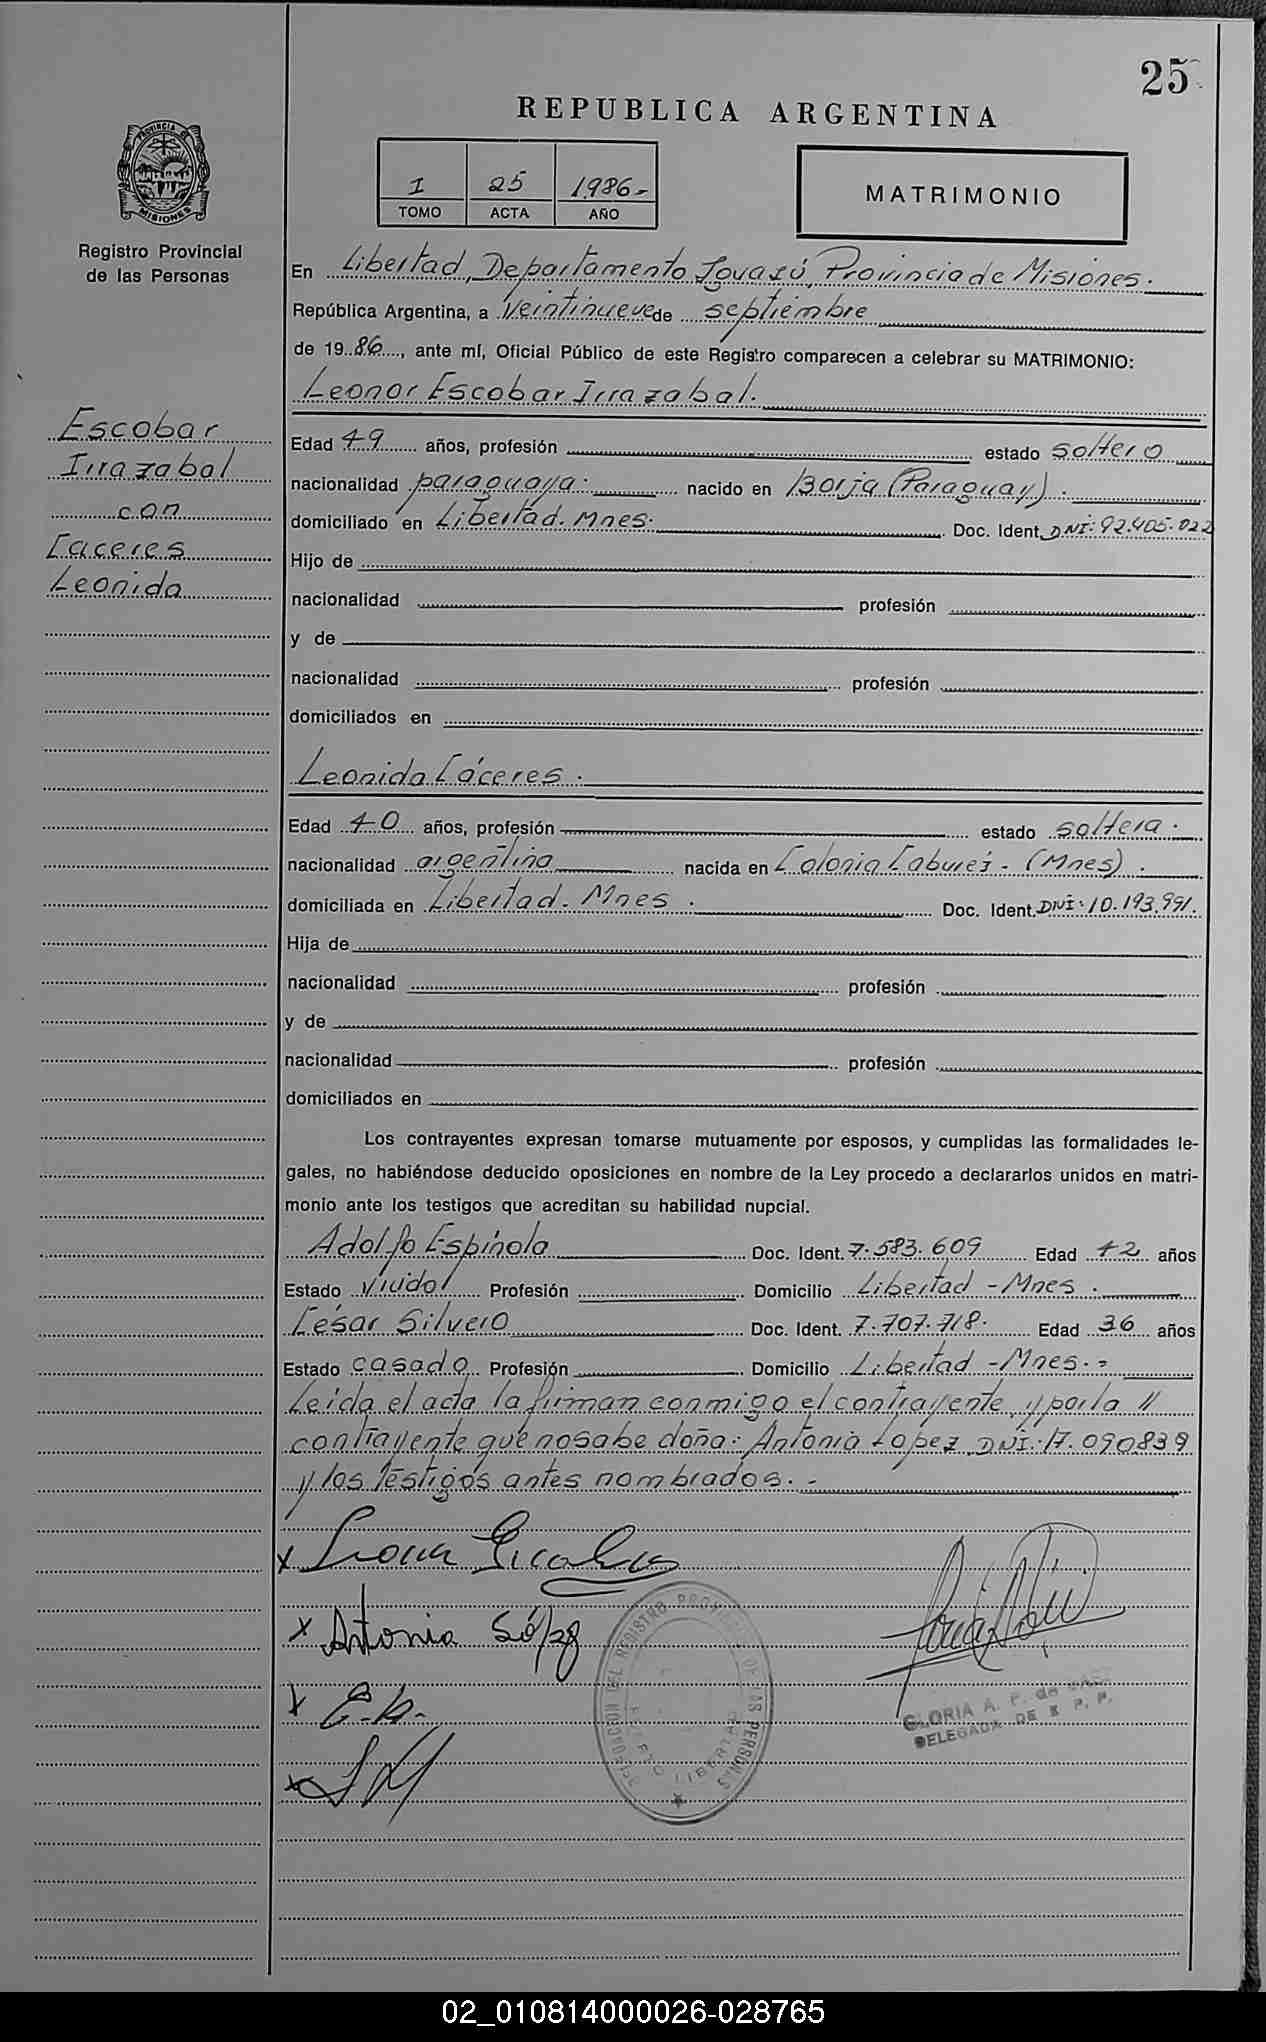 25
REPUBLICA ARGENTINA
PROVINCIA DE MISIONES
I 25 1986-
TOMO ACTA AÑO
MATRIMONIO
Registro Provincial
de las Personas
En Libertad, Departamento Iguazú, Provincia de Misiones.
República Argentina, a Veintinueve de septiembre
de 19 86, ante mí, Oficial Público de este Registro comparecen a celebrar su MATRIMONIO:
Leonor Escobar Irrazabal.
Escobar
Irrazabal
con
Caceres
Leonida
Edad 49 años, profesión estado soltero
nacionalidad paraguaya. nacido en Borja (Paraguay).
domiciliado en Libertad. Mnes. Doc. Ident. DNI: 92.405.022
Hijo de
nacionalidad profesión
y de
nacionalidad profesión
domiciliados en
Leonida Cáceres.
Edad 40 años, profesión estado soltera.
nacionalidad argentina nacida en Colonia Caburei - (Mnes).
domiciliada en Libertad. Mnes. Doc. Ident. DNI: 10.193.991.
Hija de
nacionalidad profesión
y de
nacionalidad profesión
domiciliados en
Los contrayentes expresan tomarse mutuamente por esposos, y cumplidas las formalidades le-
gales, no habiéndose deducido oposiciones en nombre de la Ley procedo a declararlos unidos en matri-
monio ante los testigos que acreditan su habilidad nupcial.
Adolfo Espínola Doc. Ident. 7.583.609 Edad 42 años
Estado Viudo Profesión Domicilio Libertad - Mnes.
César Silvero Doc. Ident. 7.707.718. Edad 36 años
Estado casado Profesión Domicilio Libertad - Mnes.-
Leida el acta la firman conmigo el contrayente, y por la //
contrayente que no sabe doña: Antonia Lopez DNI: 17.090839
y los testigos antes nombrados.-
x
x Antonia López
x E.A.
x
GLORIA A. P. de
DELEGADA DE R. P. P.
DEL REGISTRO PROVINCIAL DE LAS PERSONAS
PUERTO LIBERTAD
02_010814000026-028765